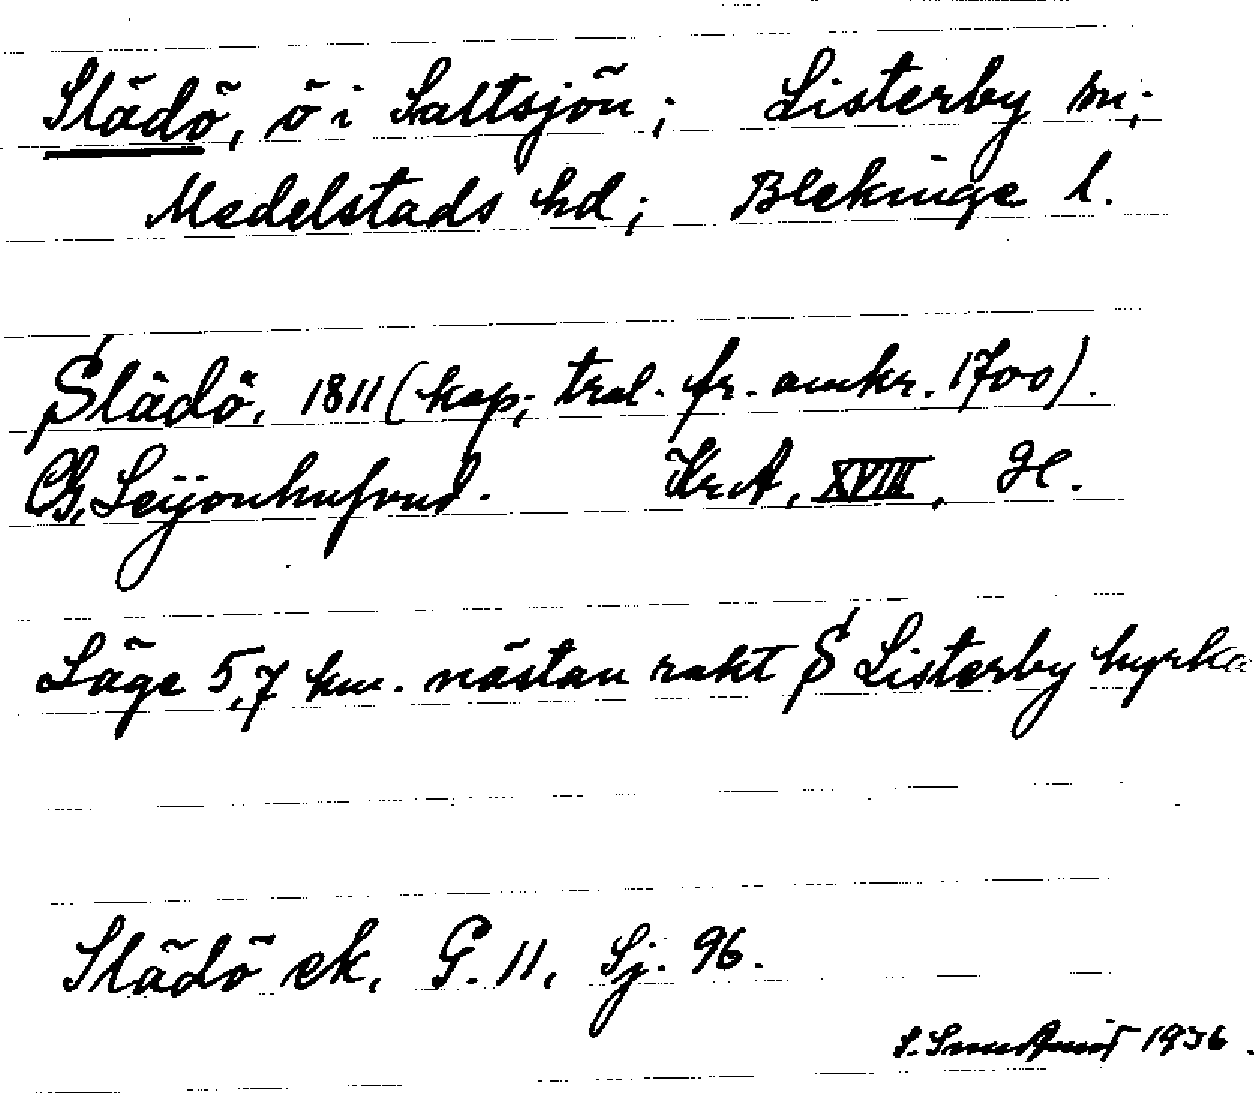 Slädö, ö i Saltsjön; Listerby sn;
Medelstads hd; Blekinge l.
Slädö, 1811 (kop; trol. fr. omkr. 1700).
CG. Leijonhufvud. KrA, XVIII, H.
Läge 5,7 km. nästan rakt S Listerby kyrka
Slädö ek. G. 11, Sj. 96.
1936.